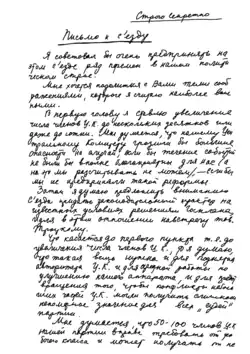 Строго секретно
Письмо к съезду
Я советовал бы очень предпринять на
этом съезде ряд перемен в нашем полити-
ческом строе.
Мне хочется поделиться с Вами теми сооб-
ражениями, которые я считаю наиболее важ-
ными.
В первую голову я ставлю увеличение
числа членов Ц.К. до нескольких десятков или
даже до сотни. Мне думается, что нашему Цен-
тральному Комитету грозили бы большие
опасности на случай, если бы течение событий
не было бы вполне благоприятно для нас (а
на это мы рассчитывать не можем), — если бы
мы не предприняли такой реформы.
Затем я думаю предложить вниманию
съезда придать законодательный характер на
известных условиях решениям Госплана,
идя в этом отношении навстречу тов.
Троцкому.
Что касается до первого пункта, т.е. до
увеличения числа членов Ц.К., то я думаю,
что такая вещь нужна и для поднятия
авторитета Ц.К. и для серьезной работы по
улучшению нашего аппарата, и для предот-
вращения того, чтобы конфликты неболь-
ших частей Ц.К. могли получить слишком
непомерное значение для всех "судеб"
партии.
Мне думается, что 50-100 членов Ц.К.
наша партия вправе требовать от ра-
бочего класса и может получить от не-